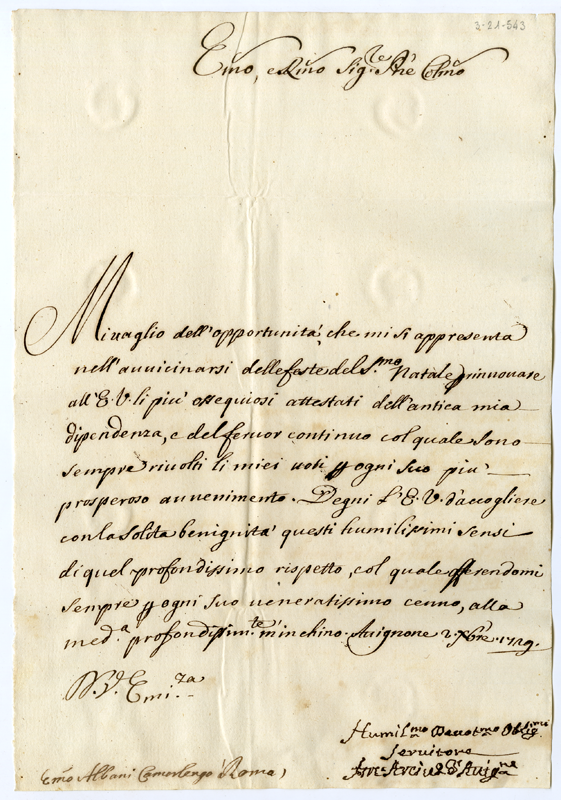 3-21-543
Emo, e Rmo Sig.re Pne Colmo
Mi uaglio dell'opportunità, che mi si appresenta
nell'auuicinarsi delle feste del S.mo Natale p rinnouare
all'E.V. li più ossequiosi attestati dell'antica mia
dipendenza, e del feruor continuo col quale sono
sempre riuolti li miei uoti p ogni suo più
prosperoso auuenimento. Degni l'E.V. d'accogliere
con la solita benignità questi humilissimi sensi
di quel profondissimo rispetto, col quale offerendomi
sempre p ogni suo ueneratissimo cenno, alla
med.a profondissim.te m'inchino. Auignone 2 Xbre 1729.
D. V. Emi.za
Humil.mo Deuot.mo Oblig.mo
Seruitore
Emo Albani Camerlengo Roma